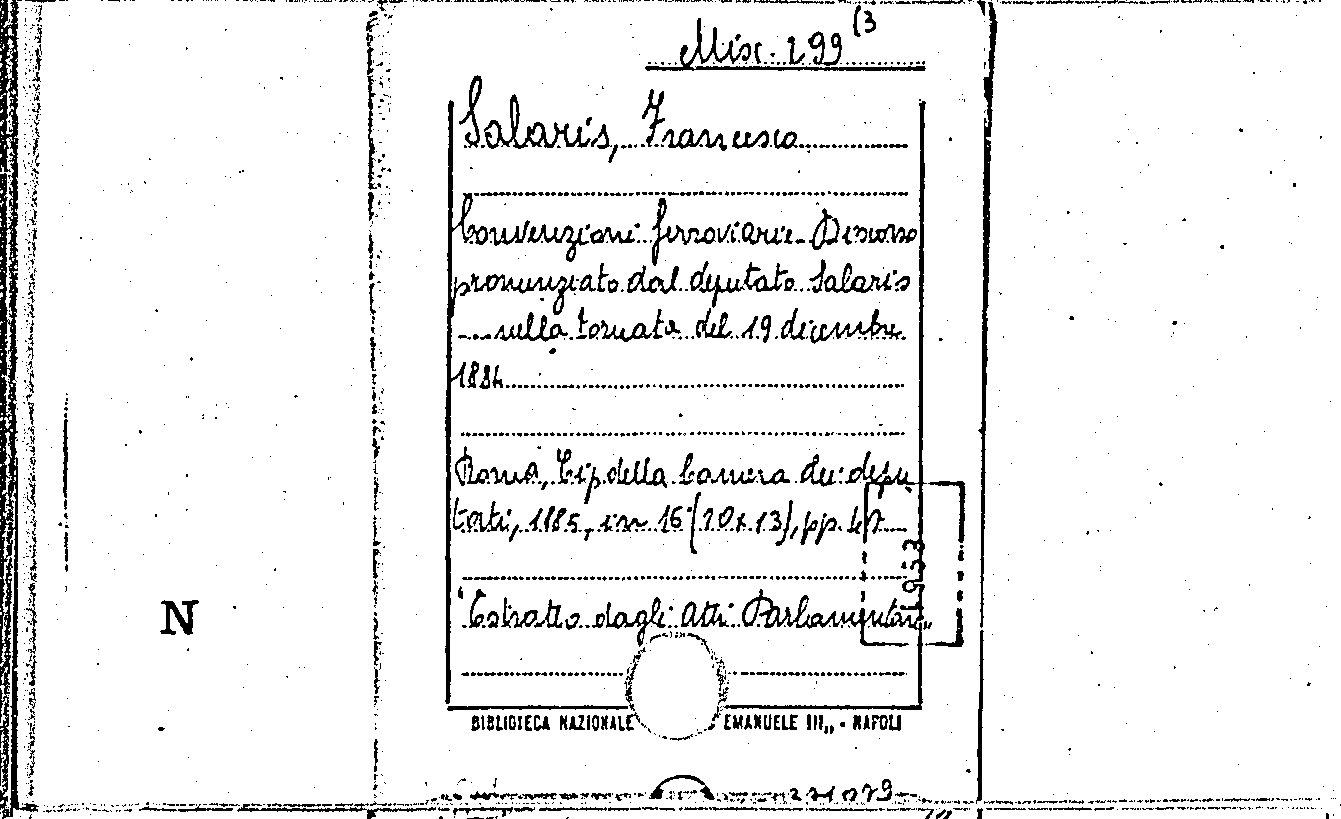 Misc. 299 (3
Salaris, Francesco
Convenzioni ferroviarie. Discorso
pronunziato dal deputato Salaris
nella tornata del 19 dicembre
1884
Roma, Tip. della Camera dei depu
tati, 1885, in 16° (20x13), pp. 47
1953
"Estratto dagli Atti Parlamentari„
N
BIBLIOTECA NAZIONALE EMANUELE III„ - NAPOLI